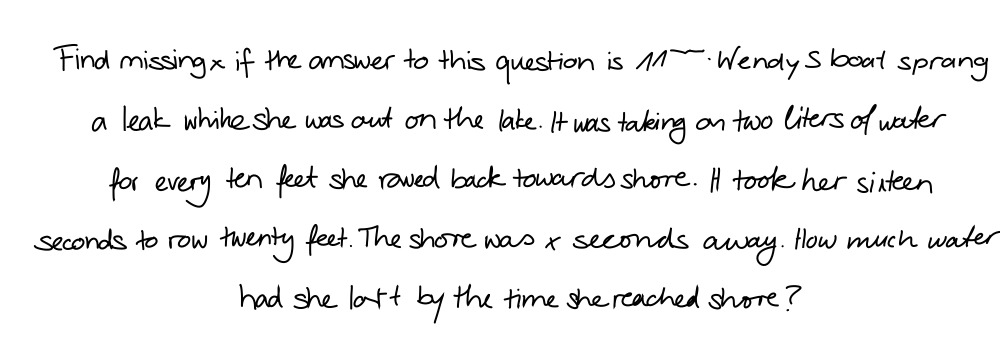 Find missing x if the answer to this question is 11 . Wendy S boat sprang
a leak whihe she was out on the lake. It was taking on two liters of water
for every ten feet she rowed back towards shore. It took her sixteen
seconds to row twenty feet. The shore was x seconds away. How much water
had she by the time she reached shore?